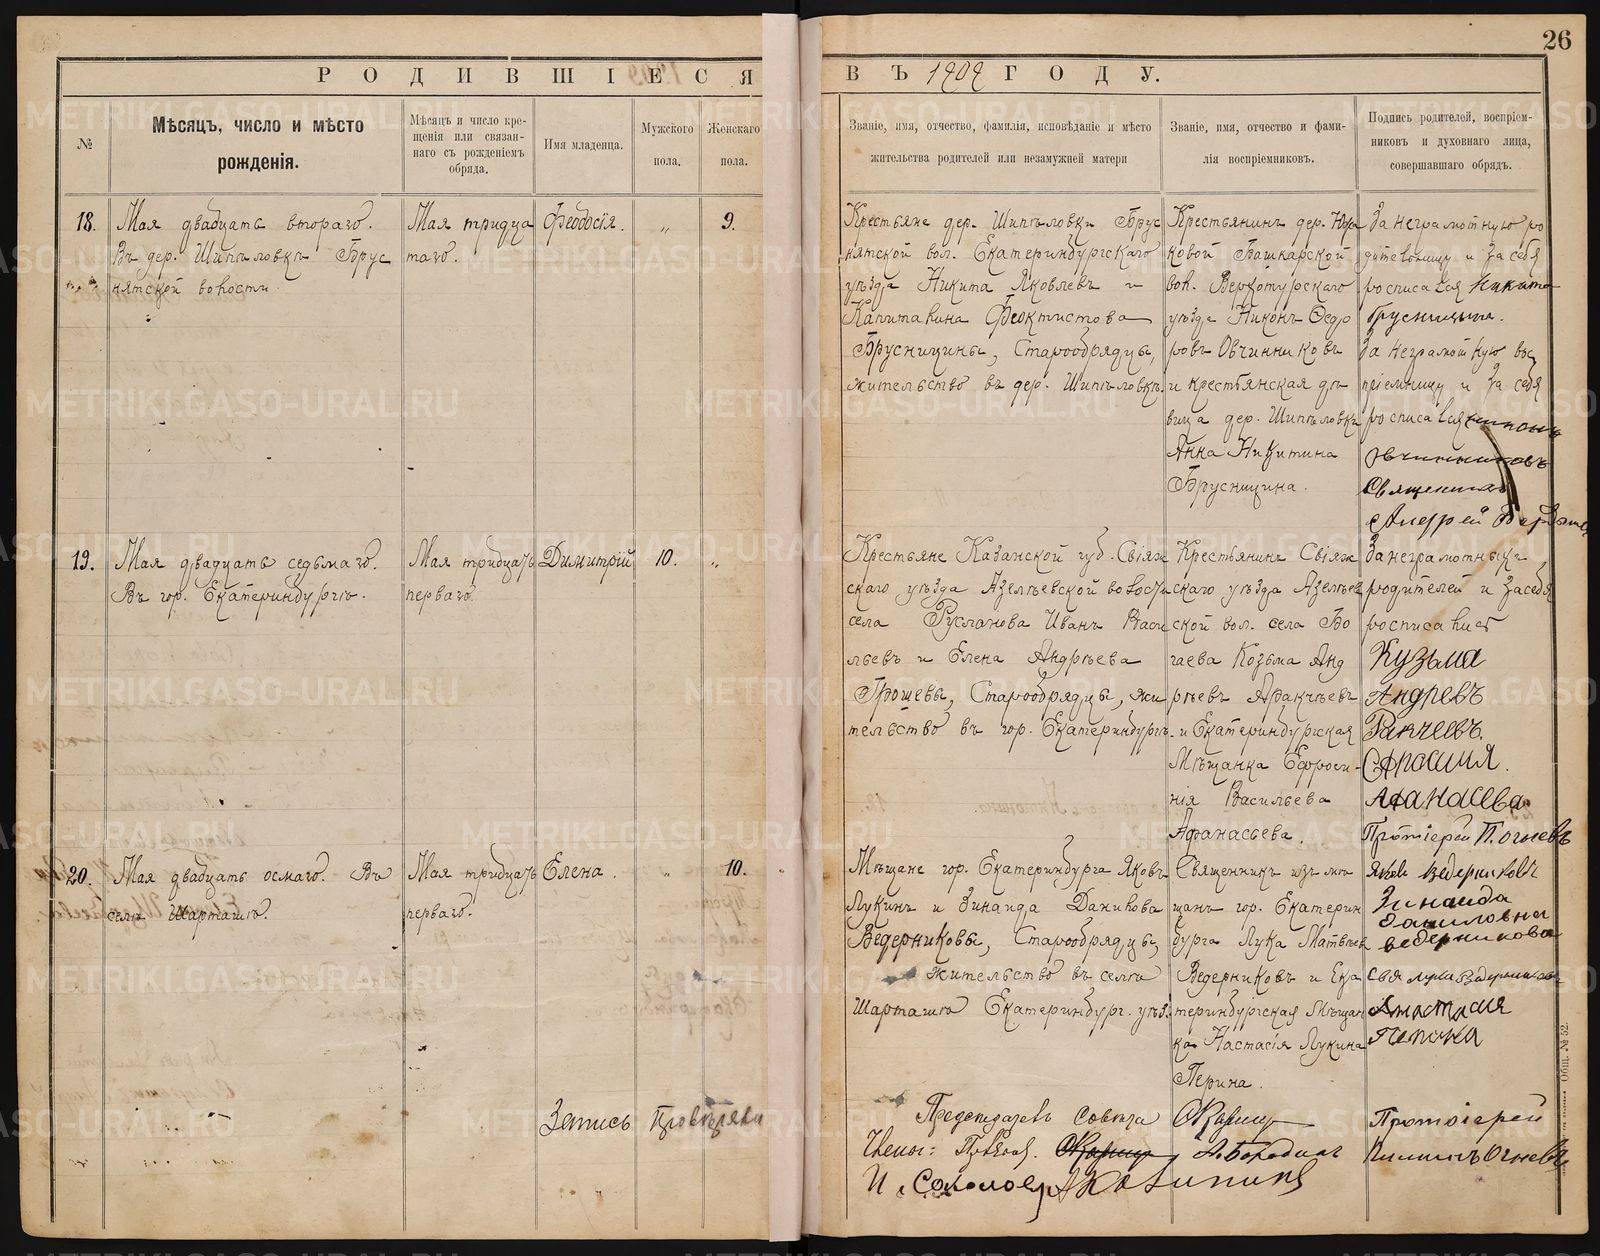 26
РОДИВШІЕСЯ
ВЪ 1909 ГОДУ.
№
Мѣсяцъ, число и мѣсто
рожденія.
Мѣсяцъ и число кре-
щенія или связан-
наго съ рожденіемъ
обряда.
Имя младенца.
Мужского
пола.
Женскаго
пола.
Званіе, имя, отчество, фамилія, исповѣданіе и мѣсто
жительства родителей или незамужней матери
Званіе, имя, отчество и фами-
лія воспріемниковъ.
Подпись родителей, воспріем-
никовъ и духовнаго лица,
совершавшаго обрядъ.
18.
Мая двадцать втораго.
Въ дер. Шипѣловкѣ Брус
нятской волости
Мая тридца
таго.
Феодосія.
„
9.
Крестьяне дер. Шипѣловки Брус
нятской вол. Екатеринбургскаго
уѣзда Никита Яковлевъ и
Капитолина Феоктистова
Брусницины, Старообрядцы,
жительство въ дер. Шипѣловкѣ.
Крестьянинъ дер.
ковой Башкарской
вол. Верхотурскаго
уѣзда Никонъ Ѳедо
ровъ Овчинниковъ
и крестьянская дѣ
вица дер. Шипѣловки
Анна Никитина
Брусницина.
За неграмотную ро
дительницу и за себя
росписался Никита
Брусницынъ.
За неграмотную вос
пріемницу и за себя
росписался Никонъ
Овчинниковъ
Священникъ
Андрей
19.
Мая двадцать седьмаго.
Въ гор. Екатеринбургѣ.
Мая тридцать
перваго.
Димитрій
10.
„
Крестьяне Казанской губ. Свіяж
скаго уѣзда Азелѣевской волости
села Русланова Иванъ Васи
льевъ и Елена Андрѣева
Грошевы, Старообрядцы, жи
тельство въ гор. Екатеринбургѣ.
Крестьянинъ Свіяж
скаго уѣзда Азелѣев
ской вол. села Бо
гаева Козьма Анд
рѣевъ Аракчѣевъ
и Екатеринбургская
Мѣщанка Ефроси-
нія Васильева
Афанасьева.
За неграмотныхъ
родителей и за себя
росписался
Кузьма
Андревъ
Ракчеевъ.
Афанасева
Протоіерей П. Огневъ
20.
Мая двадцать осмаго. Въ
селѣ Шарташѣ.
Мая тридцать
перваго.
Елена.
„
10.
Мѣщане гор. Екатеринбурга Яковъ
Лукинъ и Зинаида Данилова
Ведерниковы, Старообрядцы,
жительство въ селѣ
Шарташѣ Екатеринбург. уѣз.
Священникъ изъ мѣ
щанъ гор. Екатерин
бурга Лука Матвѣев
Ведерниковъ и Ека
теринбургская Мѣщан
ка Настасія Лукина
Перина.
Яков Ведерниковъ
Зинаида
Даниловна
ведерникова
Свя Лука Ведерников
Анастасия
Запись Провѣряли
Предсѣдатель Совѣта
Члены:
А. Бородинъ
Протоіерей
Огневъ
И